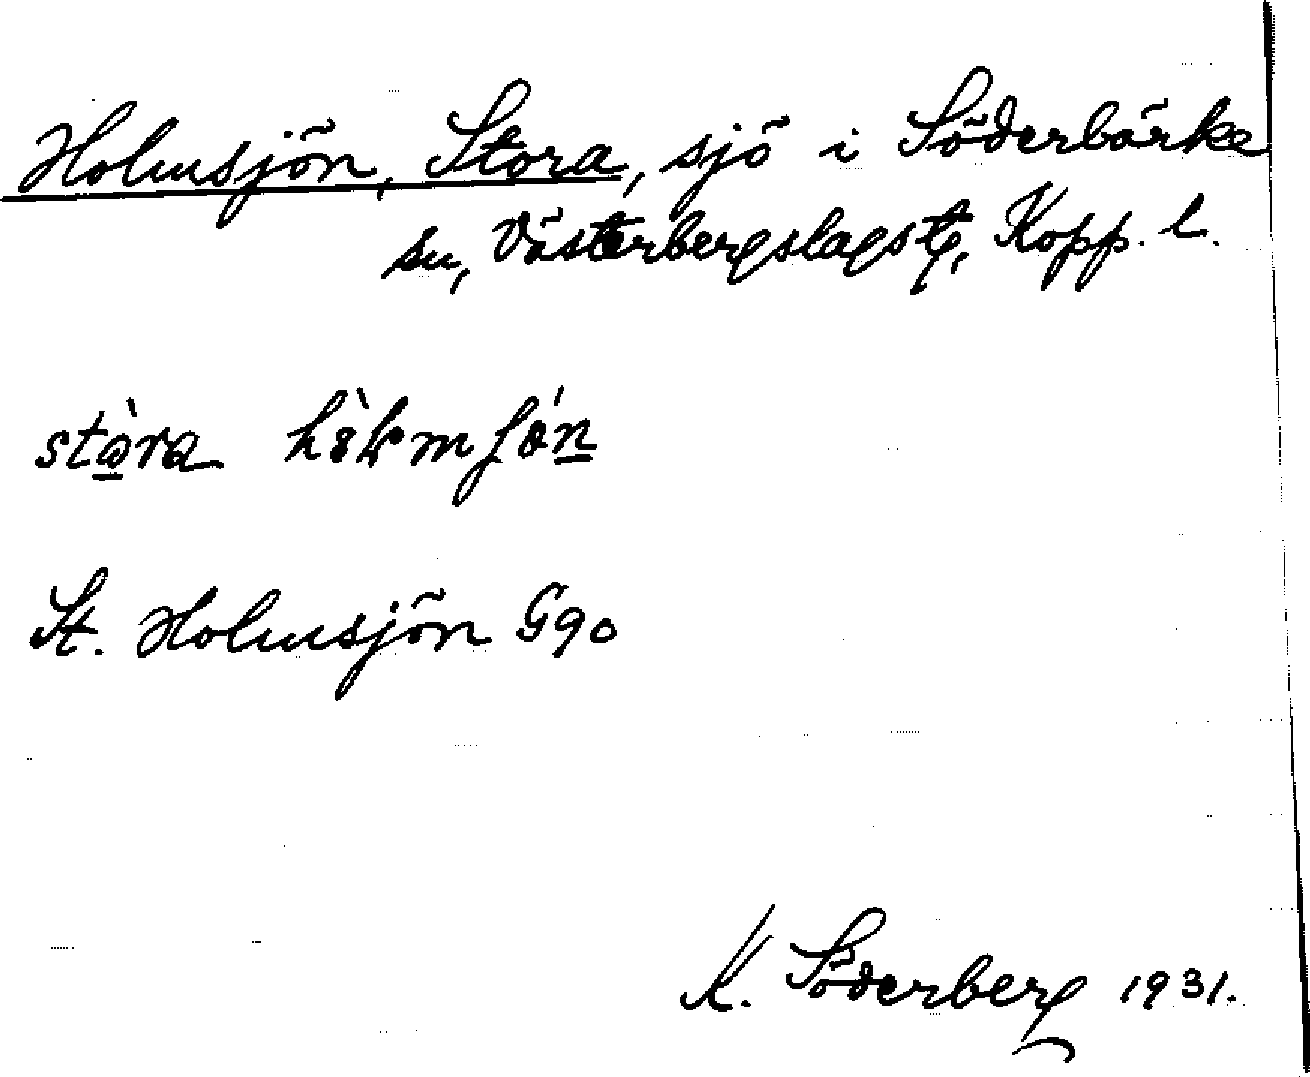 Holmsjön, Stora, sjö i Söderbärke
sn, Västerbergslags tg, Kopp. l.
St. Holmsjön G90
K. Söderberg 1931.